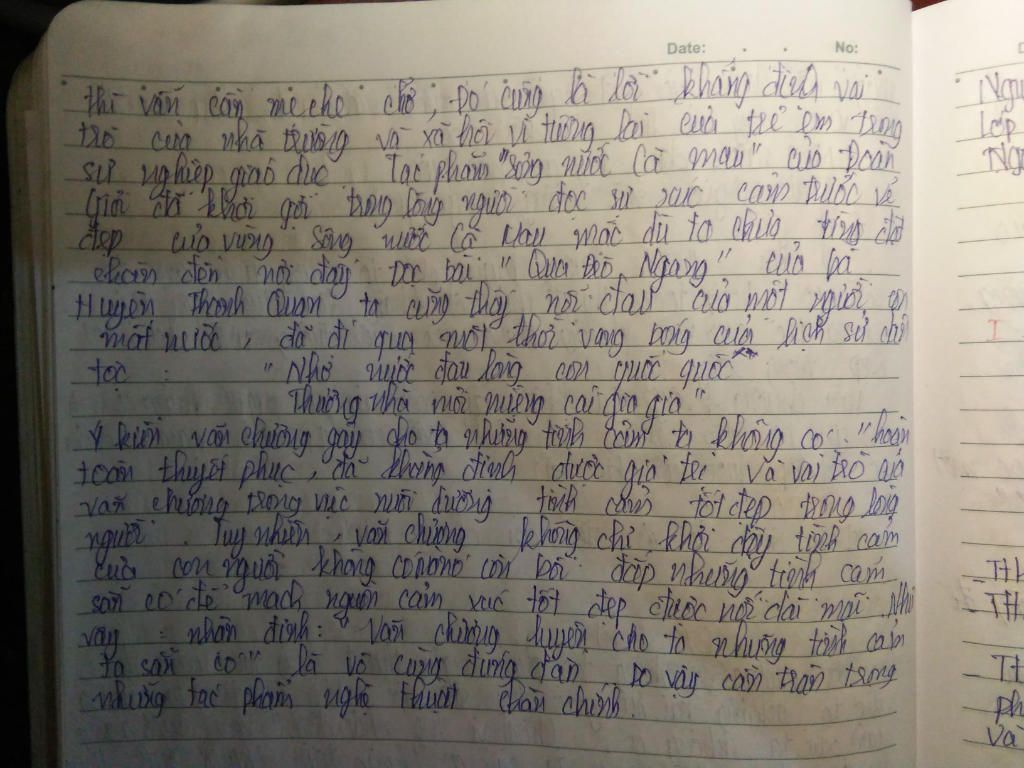 Date: . . No:
thì vẫn cần mẹ che chở, Đó cũng là lời khẳng định vai
trò của nhà trường và xã hội vì tương lai của trẻ em trong
sự nghiệp giáo dục Tác phẩm "sông nước Cà mau" của Đoàn
Giỏi đã khơi gợi trong lòng người đọc sự xúc cảm trước vẻ
đẹp của vùng sông nước Cà Mau mặc dù ta chưa từng đặt
chân đến nơi đây Đọc bài "Qua Đèo Ngang" của bà
Huyện Thanh Quan ta cũng thấy nỗi đau của một người con
mất nước, đã đi qua một thời vang bóng của lịch sử dân
tộc : "Nhớ nước đau lòng con quốc quốc
Thương nhà mỏi miệng cái gia gia"
Ý kiến văn chương gây cho ta những tình cảm ta không có "hoàn
toàn thuyết phục, đã khẳng định được giá trị và vai trò của
văn chương trong việc nuôi dưỡng tình cảm tốt đẹp trong lòng
người. Tuy nhiên, văn chương không chỉ khơi dậy tình cảm
của con người không có nó còn bồi đắp những tình cảm
sẵn có để mạch nguồn cảm xúc tốt đẹp được nối dài mãi Như
vậy : nhận định: "Văn chương luyện cho ta những tình cảm
ta sẵn có" là vô cùng đúng đắn Do vậy cần trân trọng
những tác phẩm nghệ thuật chân chính.
Ngu
Lớp
Ng
I
TTh
TTh
Tt
ph
Va